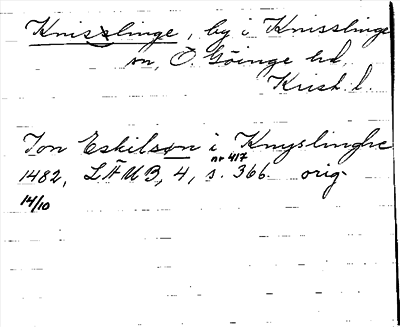 Knisslinge, by i Knisslinge
sn, Ö. Göinge hd,
Krist. l.
Jon Eskilsøn i Knyslinghe
1482, LÄUB, 4, nr 417 s. 366. orig.
14/10